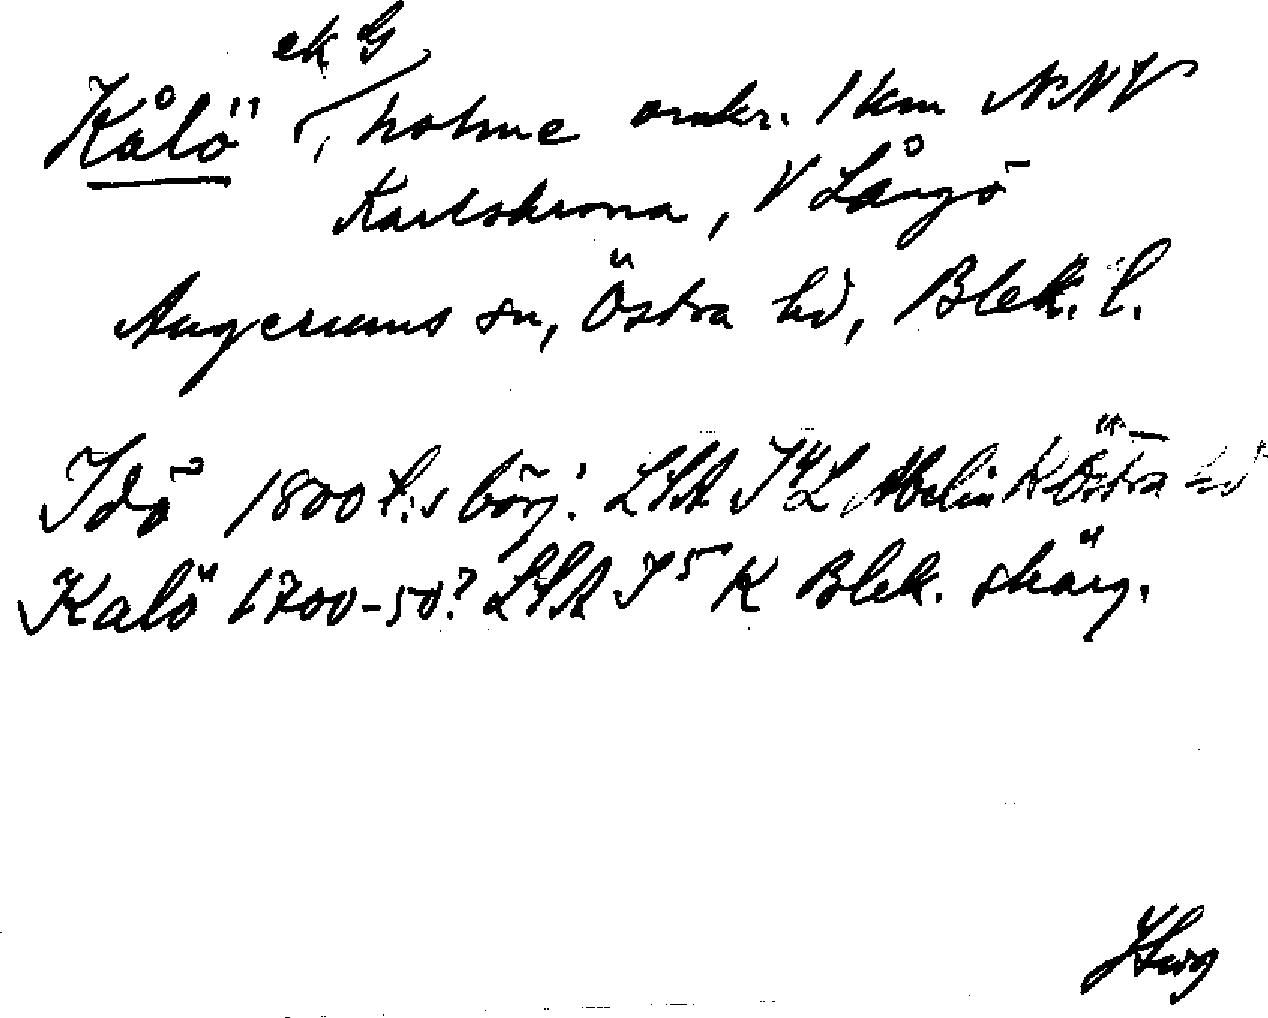 ek G
Kålö, holme omkr. 1 km NNV
Karlskrona, V Långö
Augerums sn, Östra hd, Blek. l.
Idö 1800 t.s börj. LSA I4L Abelin K Östra hd
Kalö 1700-50? LSA I5 K Blek. skärg.